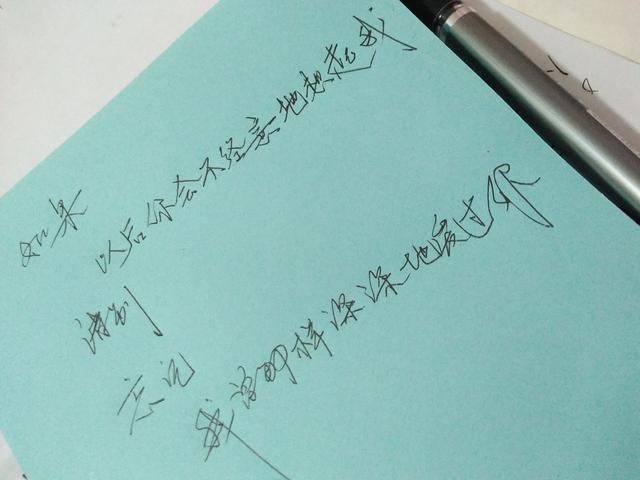 如果
以后你会不经意地想起我
请别
忘记
我曾那样深深地爱过你